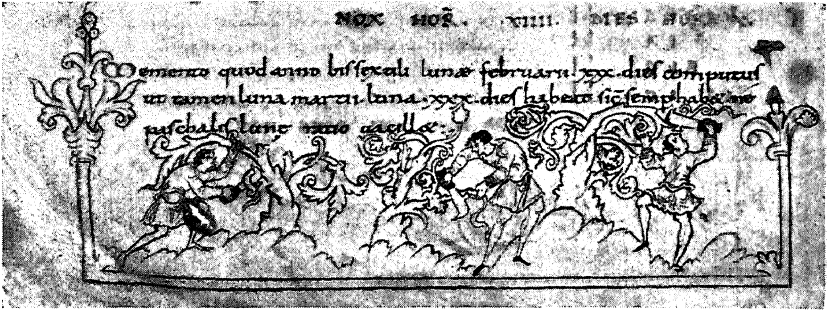 NOX HOR̅. XIIII. DIES HOR
Memento quod anno bissextili lunae februarii .xxx. dies computus
ut tamen luna martii luna .xxx. dies habeat sic̅ semp habet ne
paschalis lunę ratio vacillet